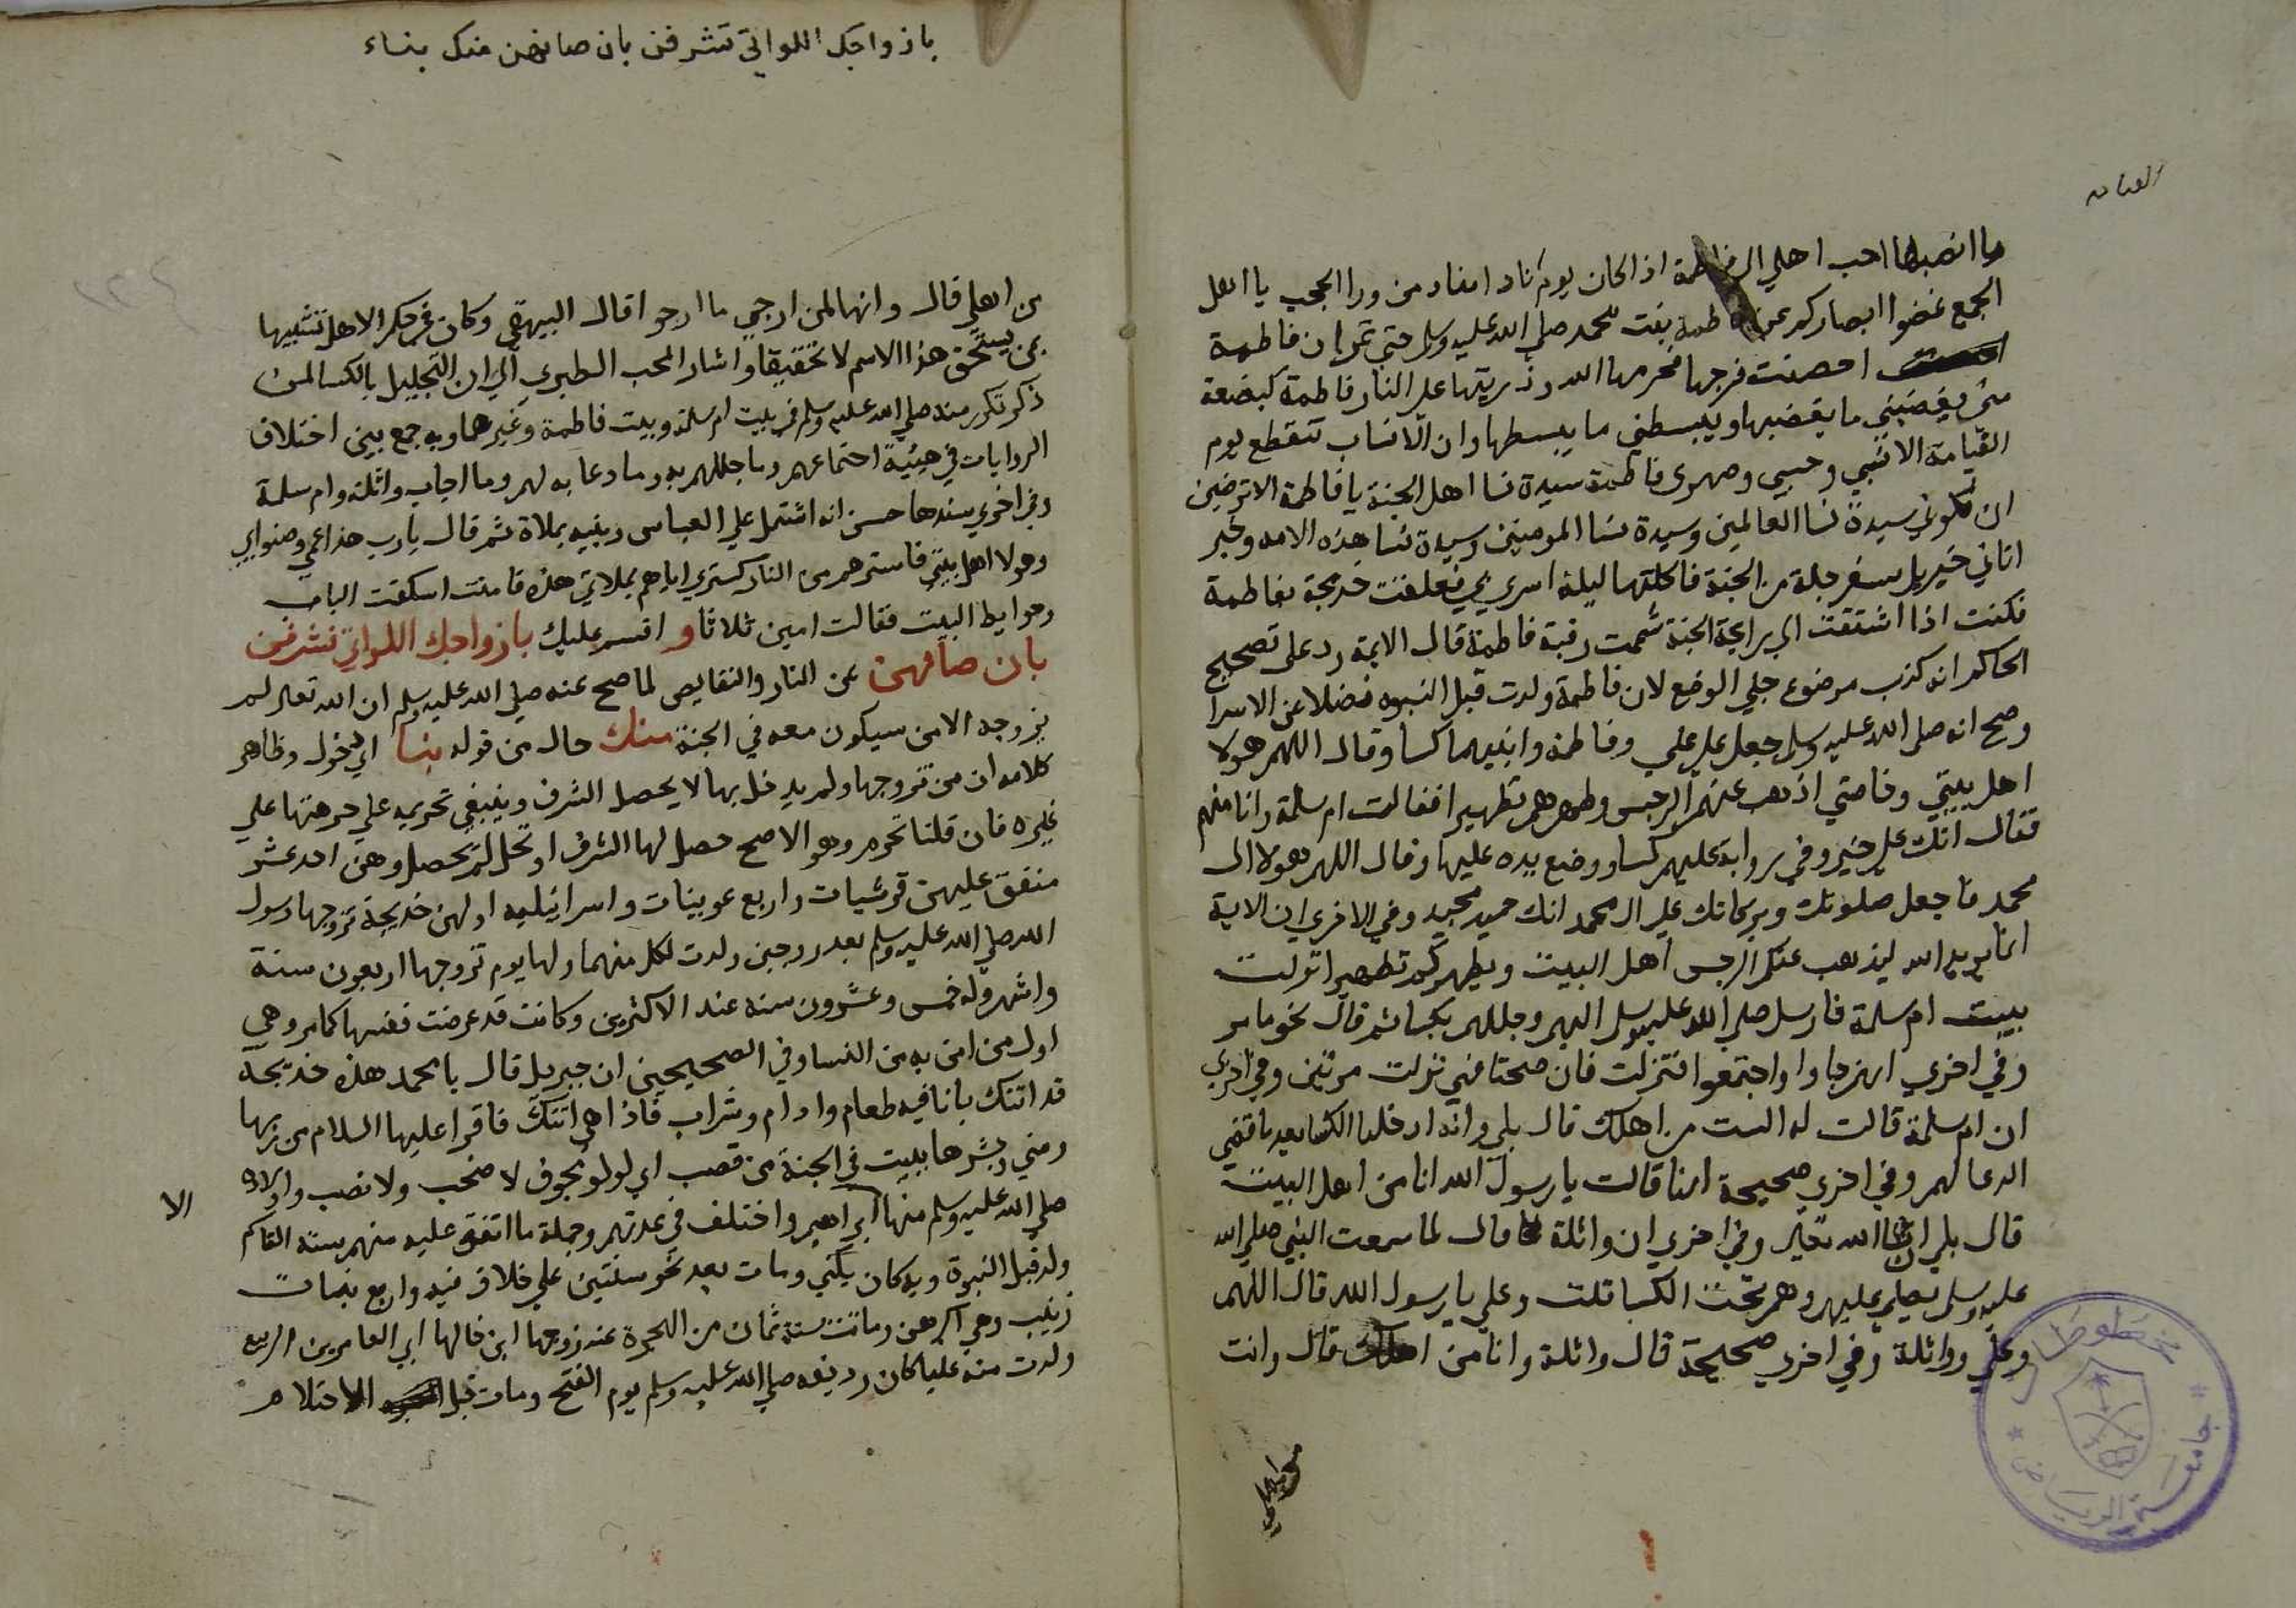 القيامه
ما انصبها احب اهلي الي فاطمة اذا كان يوم نادا مناد من ورا الحجب يا اهل
الجمع غضوا ابصاركم عن فاطمة بنت محمد صلي الله عليه وسلم حتي تمر ان فاطمة
احصنت فرجها فحرمها الله وذريتها علي النار فاطمة كبضعة
مني يغضبني ما يغضبها ويبسطني ما يبسطها وان الانساب تنقطع يوم
القيامة الا نسبي وحسبي وصهري فاطمة سيدة نسا اهل الجنة يا فاطمة الا ترضين
ان تكوني سيدة نسا العالمين وسيدة نسا المومنين وسيدة نسا هذه الامه وخبر
اتاني جبريل بسفرجلة من الجنة فاكلتها ليلة اسري بي فعلقت خديجة بفاطمة
فكنت اذا اشتقت الي رايحة الجنة شممت رقبة فاطمة قال الايمة رد علي تصحيح
الحاكم انه كذب موضوع جلي الوضع لان فاطمة ولدت قبل النبوه فضلا عن الاسرا
وصح انه صلي الله عليه وسلم جعل علي علي وفاطمة وابنيهما كسا وقال اللهم هولا
اهل بيتي وخاصتي اذهب عنهم الرجس وطهرهم تطهيرا فقالت ام سلمة وانا منهم
فقال انك علي خير وفي رواية عليهم كسا ووضع يده عليها وقال اللهم هولا ال
محمد فاجعل صلوتك وبركاتك علي ال محمد انك حميد مجيد وفي الاخري ان الاية
انما يريد الله ليذهب عنكم الرجس اهل البيت ويطهركم تطهيرا نزلت
ببيت ام سلمة فارسل صلي الله عليه وسلم اليهم وجللهم بكسا ثم قال نحو ما مر
وفي اخري انهم جاوا واجتمعوا فنزلت فان صحتا فهي نزلت مرتين وفي اخري
ان ام سلمة قالت له الست من اهلك قال بلي وانه ادخلها الكسا بعد ما قضي
الدعا لهم وفي اخري صحيحة انها قالت يا رسول الله انا من اهل البيت
قال بلي ان شا الله تعالي وفي اخري ان واثلة قال لما سمعت النبي صلي الله
عليه وسلم يصلي عليهم وهم تحت الكسا قلت وعلي يا رسول الله قال اللهم
وعلي وواثلة وفي اخري صحيحة قال واثلة وانا من اهلك قال وانت
من اهلي
جامعة الرياض
مخطوطات
بازواجك اللواتي تشرفن بان صانهن منك بناء
من اهلي قال وانها لمن ارجي ما ارجوا قال البيهقي وكان في حكم الاهل تشبيها
بمن يستحق هذا الاسم لا تحقيقا واشار المحب الطبري الي ان التجليل بالكسا لمن
ذكر تكرر منه صلي الله عليه وسلم في بيت ام سلمة وبيت فاطمة وغيرهما وبه جمع بين اختلاف
الروايات في هيئة اجتماعهم وما جللهم به وما دعا به لهم وما اجاب واثلة وام سلمة
وفي اخري سندها حسن انه اشتمل علي العباس وبنيه بملاة ثم قال يا رب هذا عمي وصنو ابي
وهولا اهل بيتي فاسترهم من النار كستري اياهم بملاتي هذه فامنت اسكفت الباب
وحوايط البيت فقالت امين ثلاثا و اقسم عليك بازواجك اللواتي تشرفن
بان صانهن عن النار والنقايص لما صح عنه صلي الله عليه وسلم ان الله تعالي لم
يزوجه الا من سيكون معه في الجنة منك حال من قوله بنا اي دخول وظاهر
كلامه ان من تزوجها ولم يدخل بها لا يحصل الشرف وينبغي تحريمه علي حرمتها علي
غيره فان قلنا تحرم وهو الاصح حصل لها الشرف او تحل لم يحصل وهن احد عشر
متفق عليهن قرشيات واربع عربيات واسرائيليه اولهن خديجة تزوجها رسول
الله صلي الله عليه وسلم بعد زوجين ولدت لكل منهما ولها يوم تزوجها اربعون سنة
واشهر وله خمس وعشرون سنه عند الاكثرين وكانت قد عرضت نفسها كما مر وهي
اول من امن به من النسا وفي الصحيحين ان جبريل قال يا محمد هذه خديجة
قد اتتك بانا فيه طعام وادام وشراب فاذا هي اتتك فاقرا عليها السلام من ربها
ومني وبشرها ببيت في الجنة من قصب اي لولو مجوف لا صخب ولا نصب واولاده
صلي الله عليه وسلم منها ابراهيم واختلف في عدتهم وجملة ما اتفق عليه منهم ستة القاسم
الا
ولد قبل النبوة وبه كان يكني ومات بعد نحو سنتين علي خلاف فيه واربع بنات
زينب وهي اكبرهن وماتت سنة ثمان من الهجرة عند زوجها ابن خالها ابي العاص بن الربيع
ولدت منه عليا كان رديفه صلي الله عليه وسلم يوم الفتح ومات قبل الاحتلام